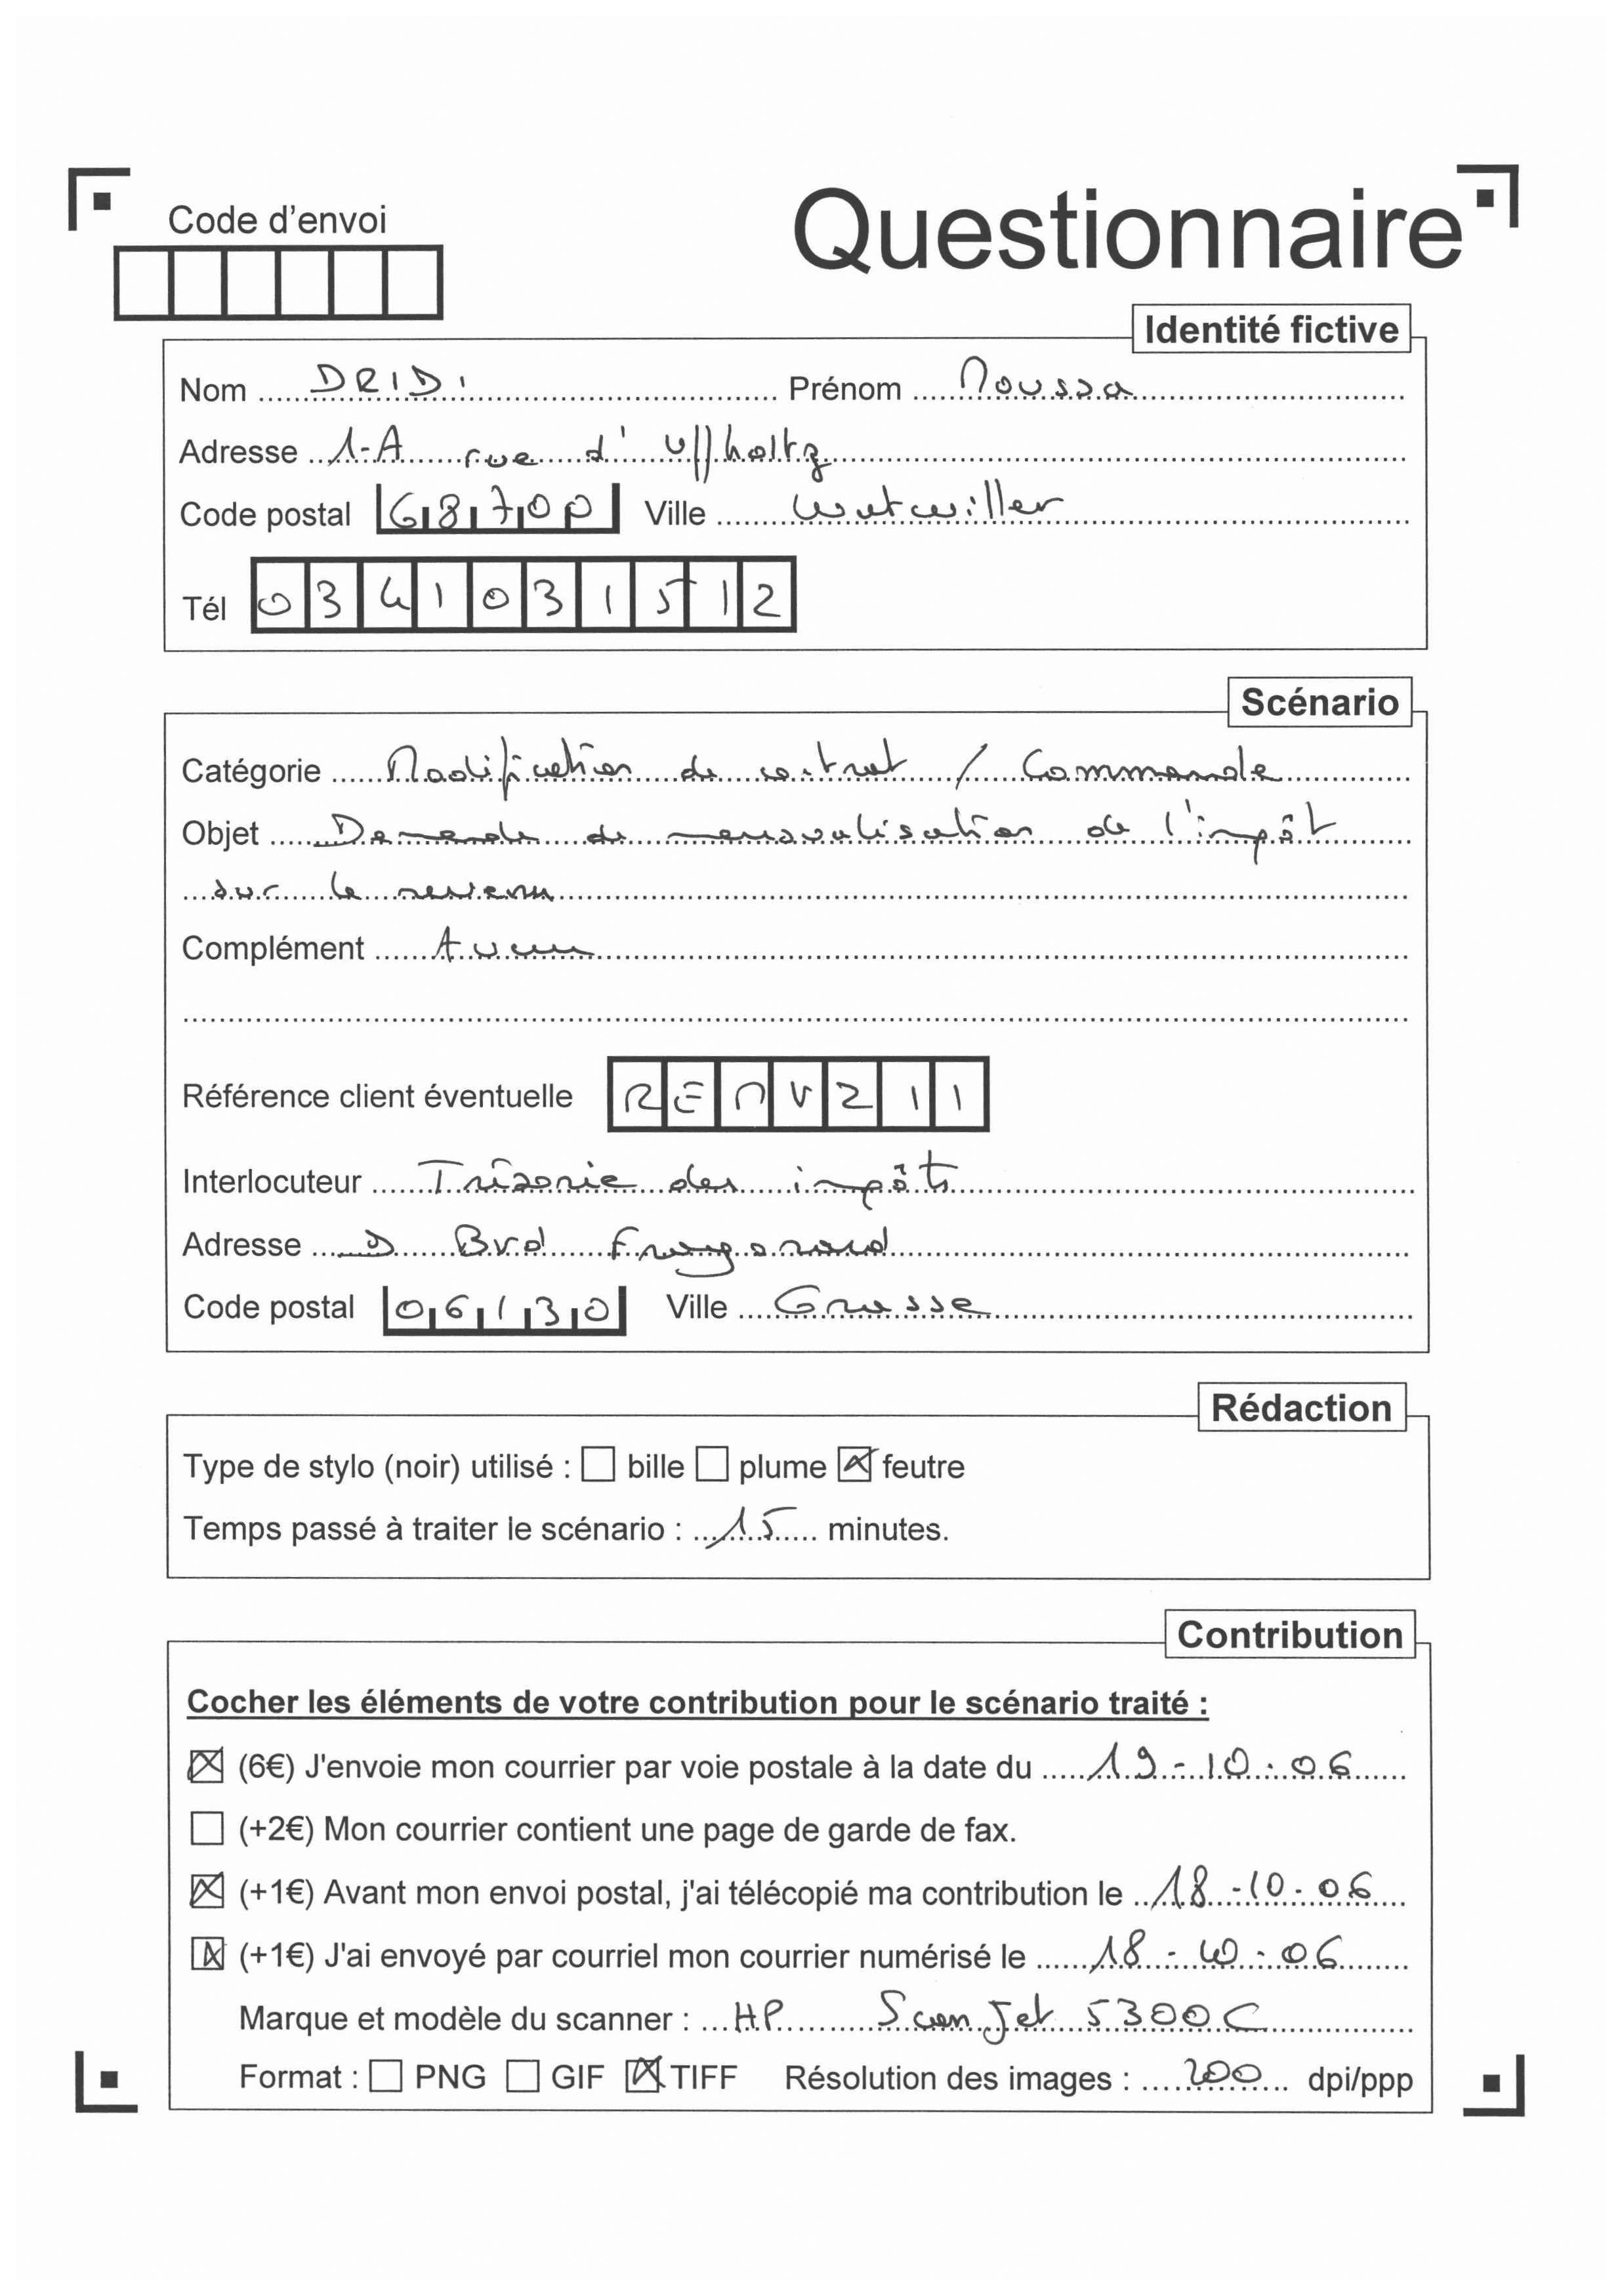 Code d'envoi
Questionnaire
Identité fictive
Nom DRIDI Prénom Moussa
Adresse 1-A rue d'Uffholtz
Code postal 68700 Ville Wattwiller
Tél 0341031512
Scénario
Catégorie Modification de contrat / Commande
Objet Demande de mensualisation de l'impôt
sur le revenu
Complément Aucun
Référence client éventuelle REMV211
Interlocuteur Trésorie des impôts
Adresse Bvd Fragonard
Code postal 06130 Ville Grasse
Rédaction
Type de stylo (noir) utilisé : bille plume feutre
Temps passé à traiter le scénario : 15 minutes.
Contribution
Cocher les éléments de votre contribution pour le scénario traité :
(6€) J'envoie mon courrier par voie postale à la date du 19-10-06
(+2€) Mon courrier contient une page de garde de fax.
(+1€) Avant mon envoi postal, j'ai télécopié ma contribution le 18-10-06
(+1€) J'ai envoyé par courriel mon courrier numérisé le 18-10-06
Marque et modèle du scanner : HP ScanJet 5300C
Format : PNG GIF TIFF Résolution des images : 200 dpi/ppp